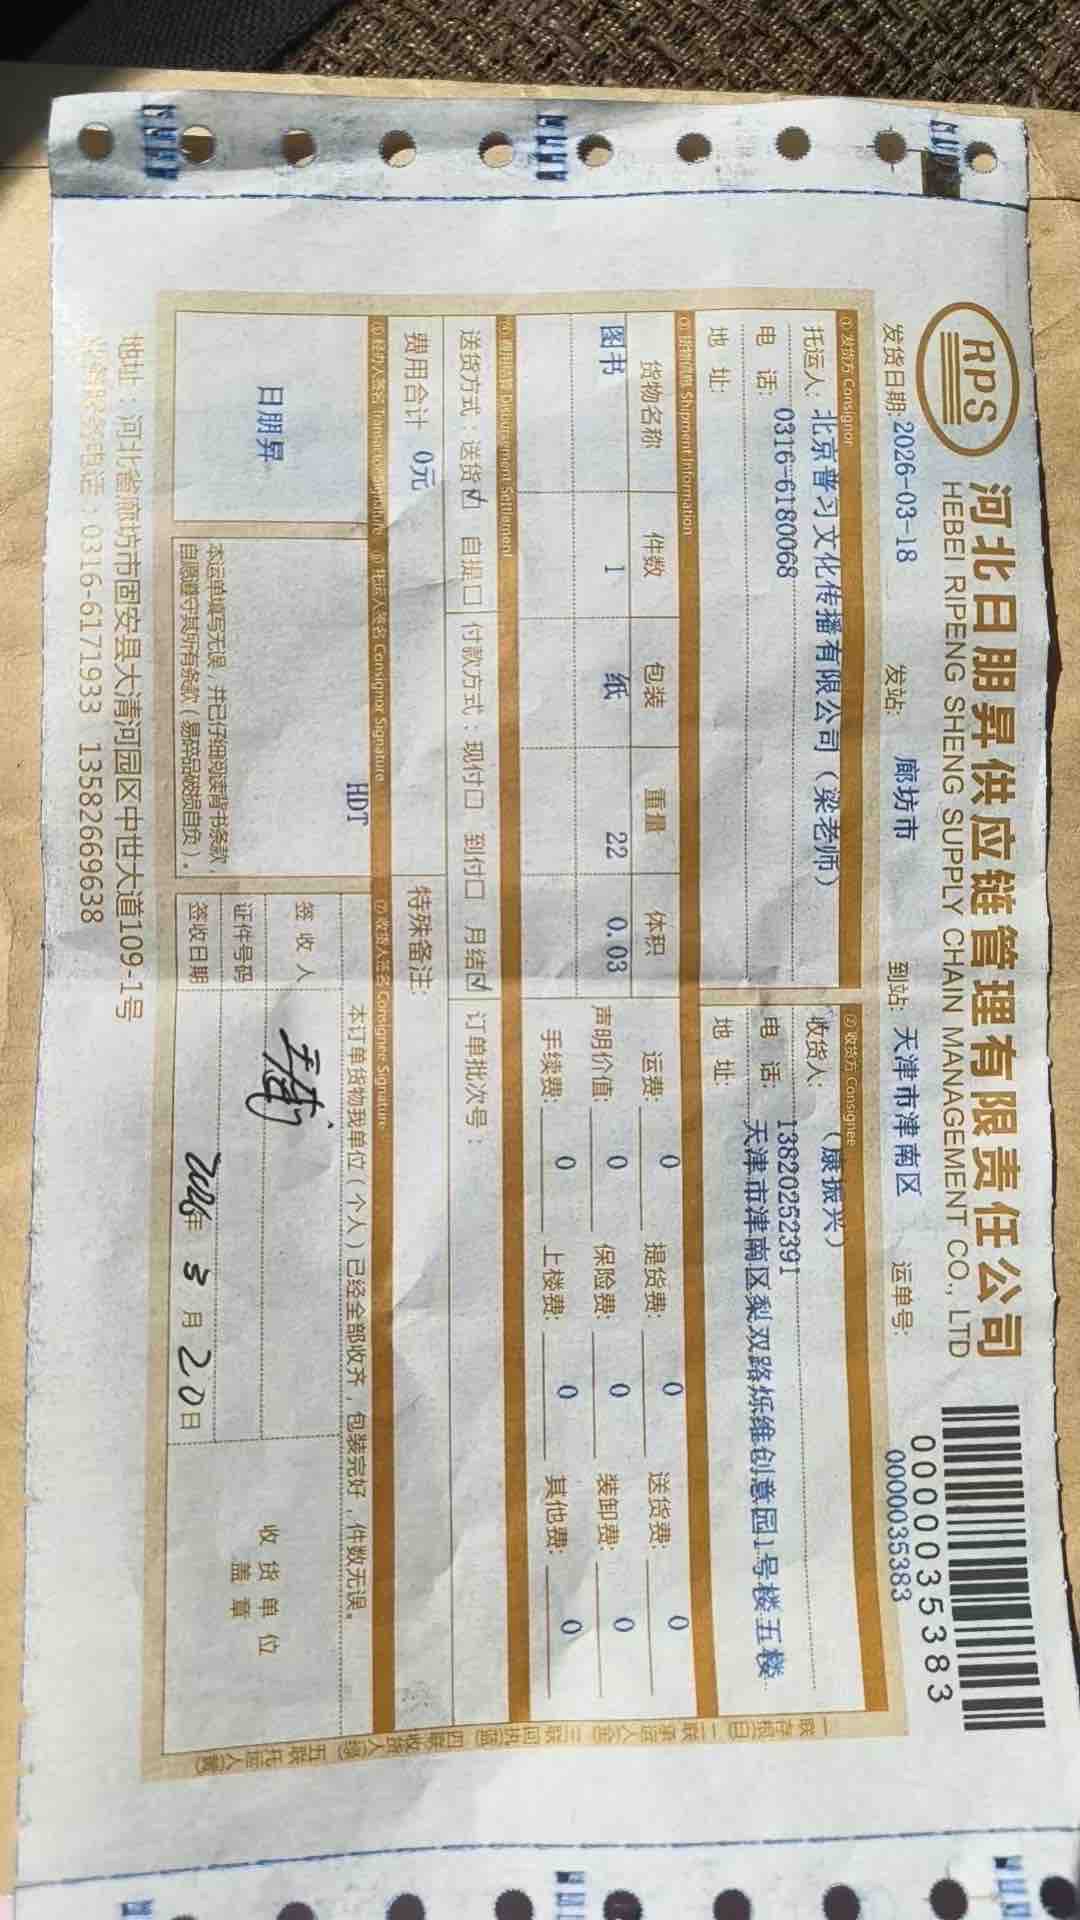 RPS
河北日朋昇供应链管理有限责任公司
HEBEI RIPENG SHENG SUPPLY CHAIN MANAGEMENT CO., LTD
0000035383
发货日期: 2026-03-18 发站: 廊坊市 到站: 天津市津南区 运单号: 0000035383
① 发货方 Consignor
托运人: 北京普习文化传播有限公司（梁老师）
电 话: 0316-6180068
地 址:
② 收货方 Consignee
收货人: （康振兴）
电 话: 13820252391
地 址: 天津市津南区梨双路烁维创意园1号楼五楼
③ 货物信息 Shipment Information
货物名称 件数 包装 重量 体积
图书 1 纸 22 0.03
运费: 0 提货费: 0 送货费: 0
声明价值: 0 保险费: 0 装卸费: 0
手续费: 0 上楼费: 0 其他费: 0
④ 费用结算 Disbursement Settlement
送货方式：送货☑ 自提☐ 付款方式：现付☐ 到付☐ 月结☑ 订单批次号：
费用合计 0元 特殊备注:
HDT
⑤ 经办人签名 Transactor Signature
日朋昇
⑥ 托运人签名 Consignor Signature
本运单填写无误，并已仔细阅读背书条款，
自愿遵守其所有条款（易碎品破损自负）。
⑦ 收货人签名 Consignee Signature
本订单货物我单位（个人）已经全部收齐，包装完好，件数无误。
签 收 人
证件号码
签收日期 2026年 3月 20日
收货单位
盖章
一联存根(白) 二联承运人(金) 三联回执(蓝) 四联收货人(绿) 五联托运人(黄)
地址：河北省廊坊市固安县大清河园区中世大道109-1号
电话：0316-6171933 13582669638